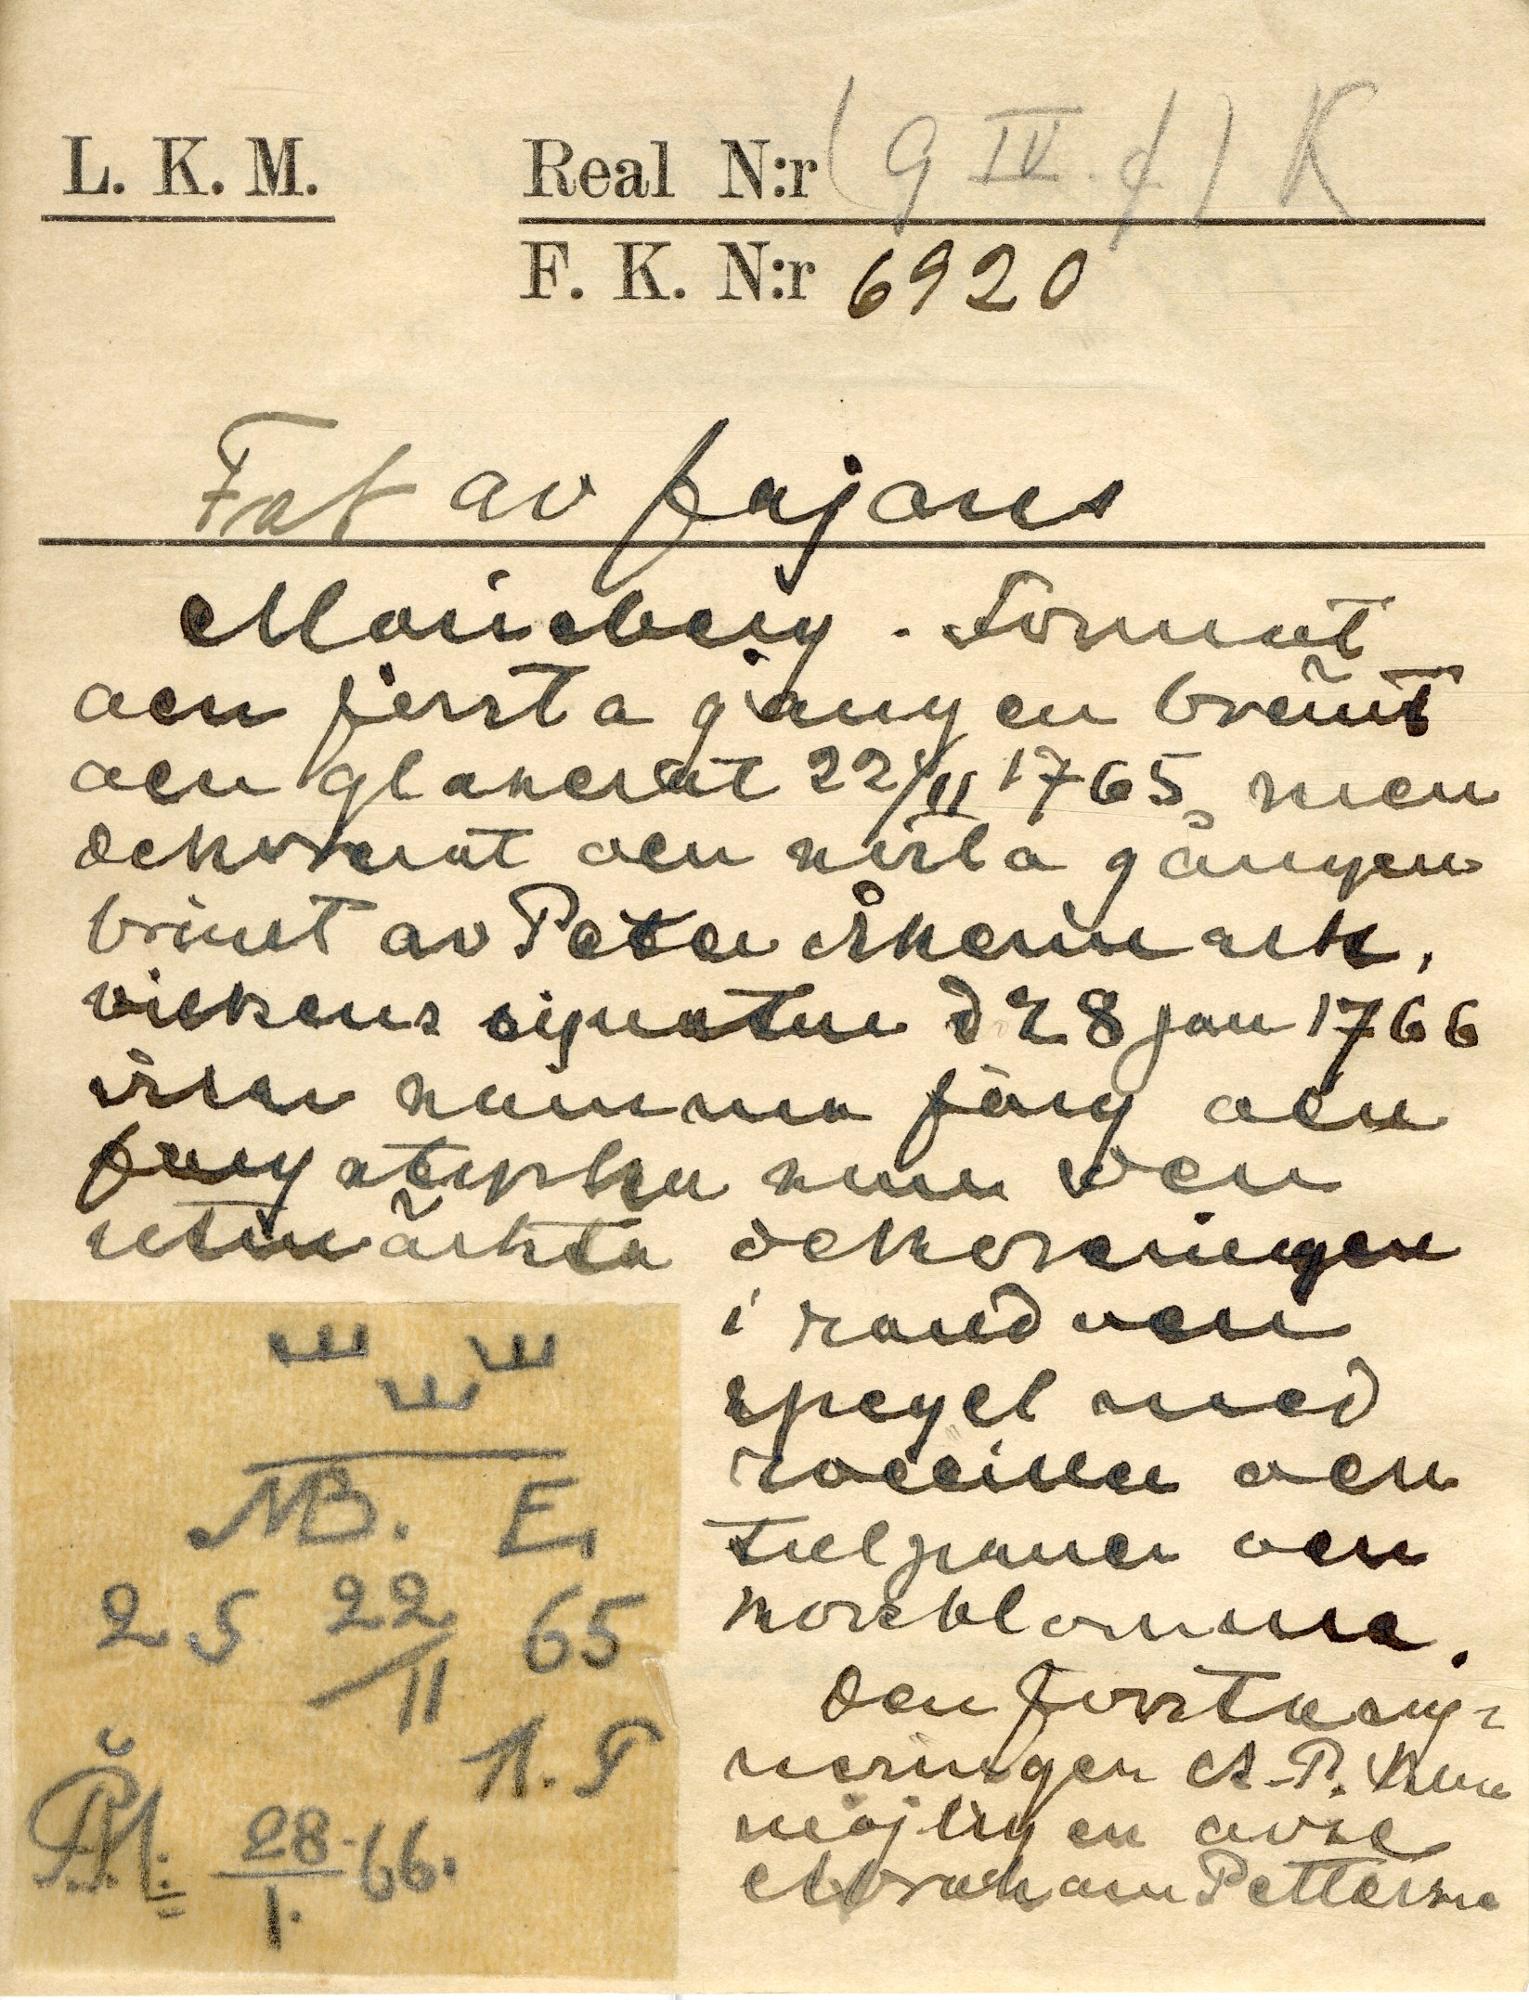 L. K. M.
Real N:r (9 IV. f) K
F. K. N:r 6920
Fat av fajans
Marieberg. Format
och första gången bränt
och glaserat 22/11 1765, men
dekorerat och sista gången
bränt av Peter Åkermark,
vilkens signatur d 28 jan 1766
är av samma färg och
färgstyrka som den
utmärkta dekoreringen
i rand och
spegel med
rocailler och
tulpaner och
korsblomma.
Den första sig-
neringen A. P. kan
möjligen avse
Abraham Pettersson
MB. E,
2 S 22/11 65
28/1. 66.